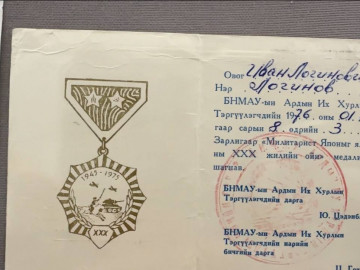 1945-1975
XXX
Овог Иван Логинович
Нэр Логинов
БНМАУ-ын Ардын Их Хурлын
Тэргүүлэгчдийн 1976 оны 01.
гаар сарын 8 өдрийн 3...
Зарлигаар «Милитарист Японыг ял
ны XXX жилийн ойн» медаль
шагнав.
БНМАУ-ын Ардын Их Хурлын
Тэргүүлэгчдийн дарга
Ю. Цэдэнб
БНМАУ-ын Ардын Их Хурлын
Тэргүүлэгчдийн нарийн
бичгийн дарга